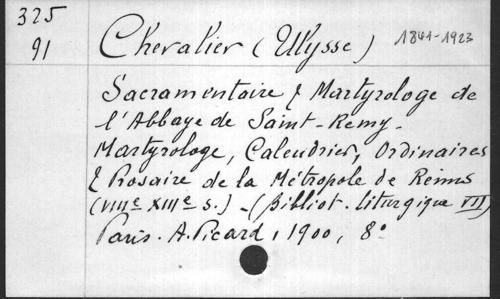 325
91
Chevalier (Ulysse) 1841-1923
Sacramentaire & Martyrologe de
l'Abbaye de Saint-Remy-
Martyrologe, Calendrier, Ordinaires
& Prosaire de la Métropole de Reims
(VIIIe XIIIe s.) - (Bibliot. liturgique VII)
Paris. A. Picard, 1900, 8°